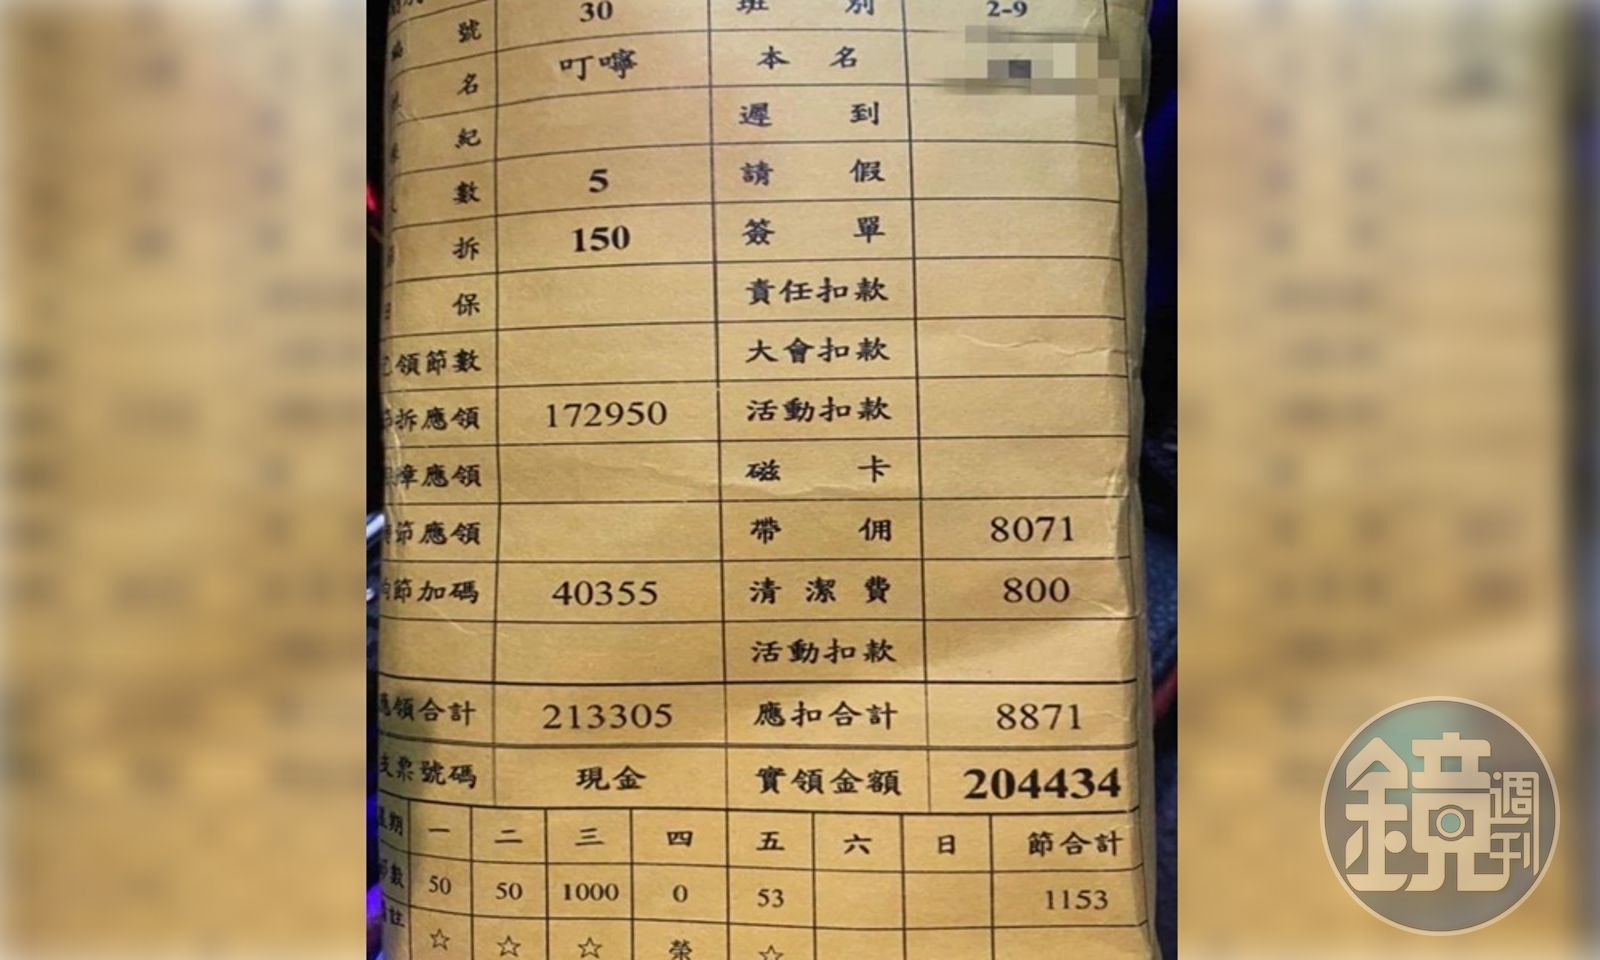 號 30 班別 2-9
名 叮嚀 本名
紀 遲到
數 5 請假
拆 150 簽單
保 責任扣款
領節數 大會扣款
節拆應領 172950 活動扣款
障應領 磁卡
節應領 帶佣 8071
節加碼 40355 清潔費 800
活動扣款
應領合計 213305 應扣合計 8871
支票號碼 現金 實領金額 204434
期 一 二 三 四 五 六 日 節合計
節數 50 50 1000 0 53 1153
註 ☆ ☆ ☆ 榮 ☆
鏡週刊